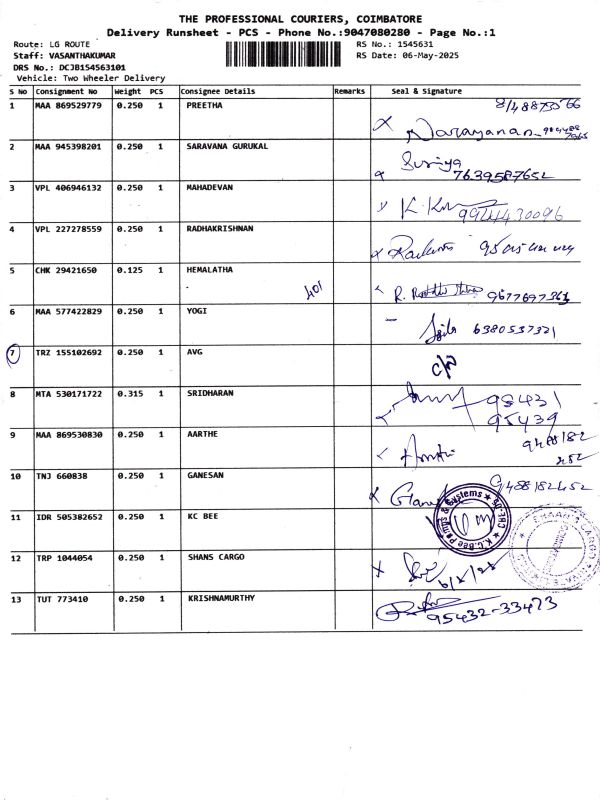 THE PROFESSIONAL COURIERS, COIMBATORE
Delivery Runsheet - PCS - Phone No.:9047080280 - Page No.:1
Route: LG ROUTE
RS No.: 1545631
Staff: VASANTHAKUMAR
RS Date: 06-May-2025
DRS No.: DCJB154563101
Vehicle: Two Wheeler Delivery
S No Consignment No Weight PCS Consignee Details Remarks Seal & Signature
1 MAA 869529779 0.250 1 PREETHA
Narayanan
2 MAA 945398201 0.250 1 SARAVANA GURUKAL Suriya
7639587652
3 VPL 406946132 0.250 1 MAHADEVAN
9944430096
4 VPL 227278559 0.250 1 RADHAKRISHNAN
5 CHK 29421650 0.125 1 HEMALATHA 401
9677697363
6 MAA 577422829 0.250 1 YOGI
6380537321
7 TRZ 155102692 0.250 1 AVG
8 MTA 530171722 0.315 1 SRIDHARAN 98431
95439
9 MAA 869530830 0.250 1 AARTHE 9488182
452
10 TNJ 660838 0.250 1 GANESAN 9488182452
11 IDR 505382652 0.250 1 KC BEE K.C.Bee Pumps & Systems CBE-06
12 TRP 1044054 0.250 1 SHANS CARGO 6/5/25
13 TUT 773410 0.250 1 KRISHNAMURTHY
95432-33473